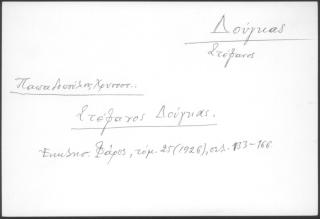 Δούγκας
Στέφανος
Παπαδοπούλος Χρυσοστ..
Στέφανος Δούγκας.
Εκκλησ. Φάρος, τόμ. 25 (1926), σελ. 133-166